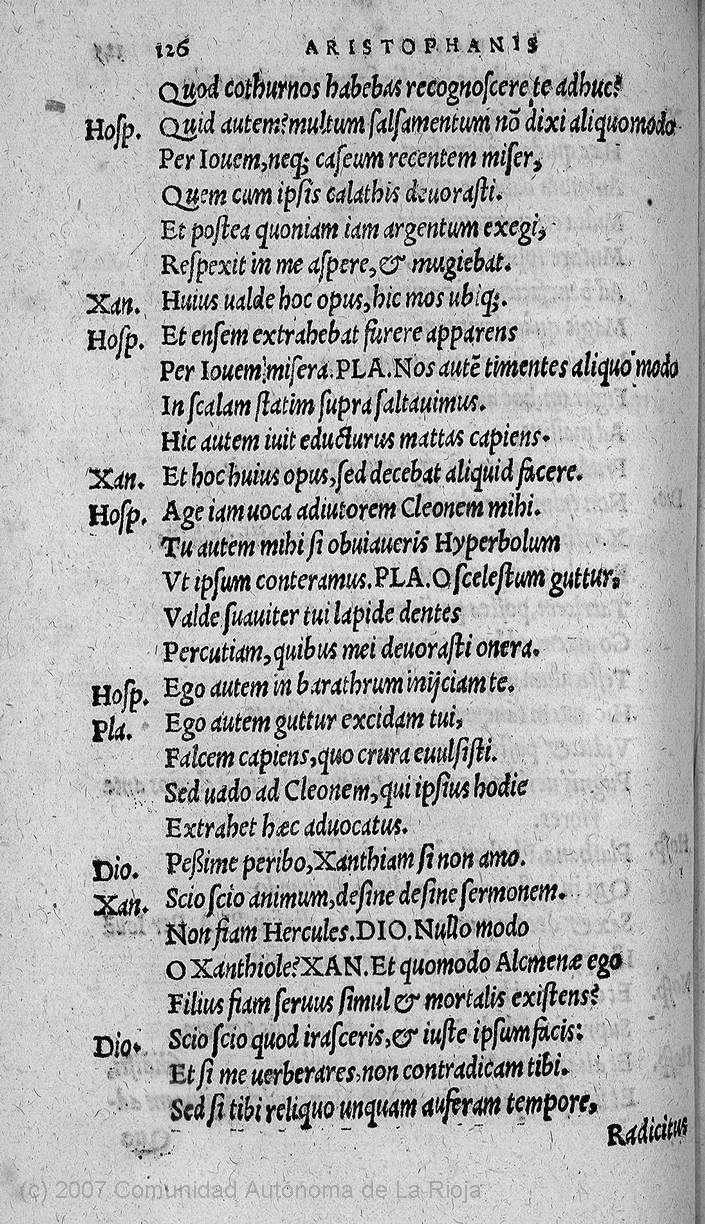 126 ARISTOPHANIS
Quod cothurnos habebas recognoſcere te adhuc?
Hoſp. Quid autem? multum ſalſamentum nõ dixi aliquomodo
Per Iouem, neq; caſeum recentem miſer,
Quem cum ipſis calathis deuoraſti.
Et poſtea quoniam iam argentum exegi,
Reſpexit in me aſpere, & mugiebat.
Xan. Huius ualde hoc opus, hic mos ubiq;.
Hoſp. Et enſem extrahebat furere apparens
Per Iouem miſera. PLA. Nos autẽ timentes aliquo modo
In ſcalam ſtatim ſupra ſaltauimus.
Hic autem iuit educturus mattas capiens.
Xan. Et hoc huius opus, ſed decebat aliquid facere.
Hoſp. Age iam uoca adiutorem Cleonem mihi.
Tu autem mihi ſi obuiaueris Hyperbolum
Vt ipſum conteramus. PLA. O ſceleſtum guttur.
Valde ſuauiter tui lapide dentes
Percutiam, quibus mei deuoraſti onera.
Hoſp. Ego autem in barathrum inijciam te.
Pla. Ego autem guttur excidam tui,
Falcem capiens, quo crura euulſiſti.
Sed uado ad Cleonem, qui ipſius hodie
Extrahet hæc aduocatus.
Dio. Peßime peribo, Xanthiam ſi non amo.
Xan. Scio ſcio animum, deſine deſine ſermonem.
Non fiam Hercules. DIO. Nullo modo
O Xanthiole? XAN. Et quomodo Alcmenæ ego
Filius fiam ſeruus ſimul & mortalis exiſtens?
Dio. Scio ſcio quod iraſceris, & iuſte ipſum facis:
Et ſi me uerberares, non contradicam tibi.
Sed ſi tibi reliquo unquam auferam tempore,
Radicitus
(c) 2007 Comunidad Autónoma de La Rioja